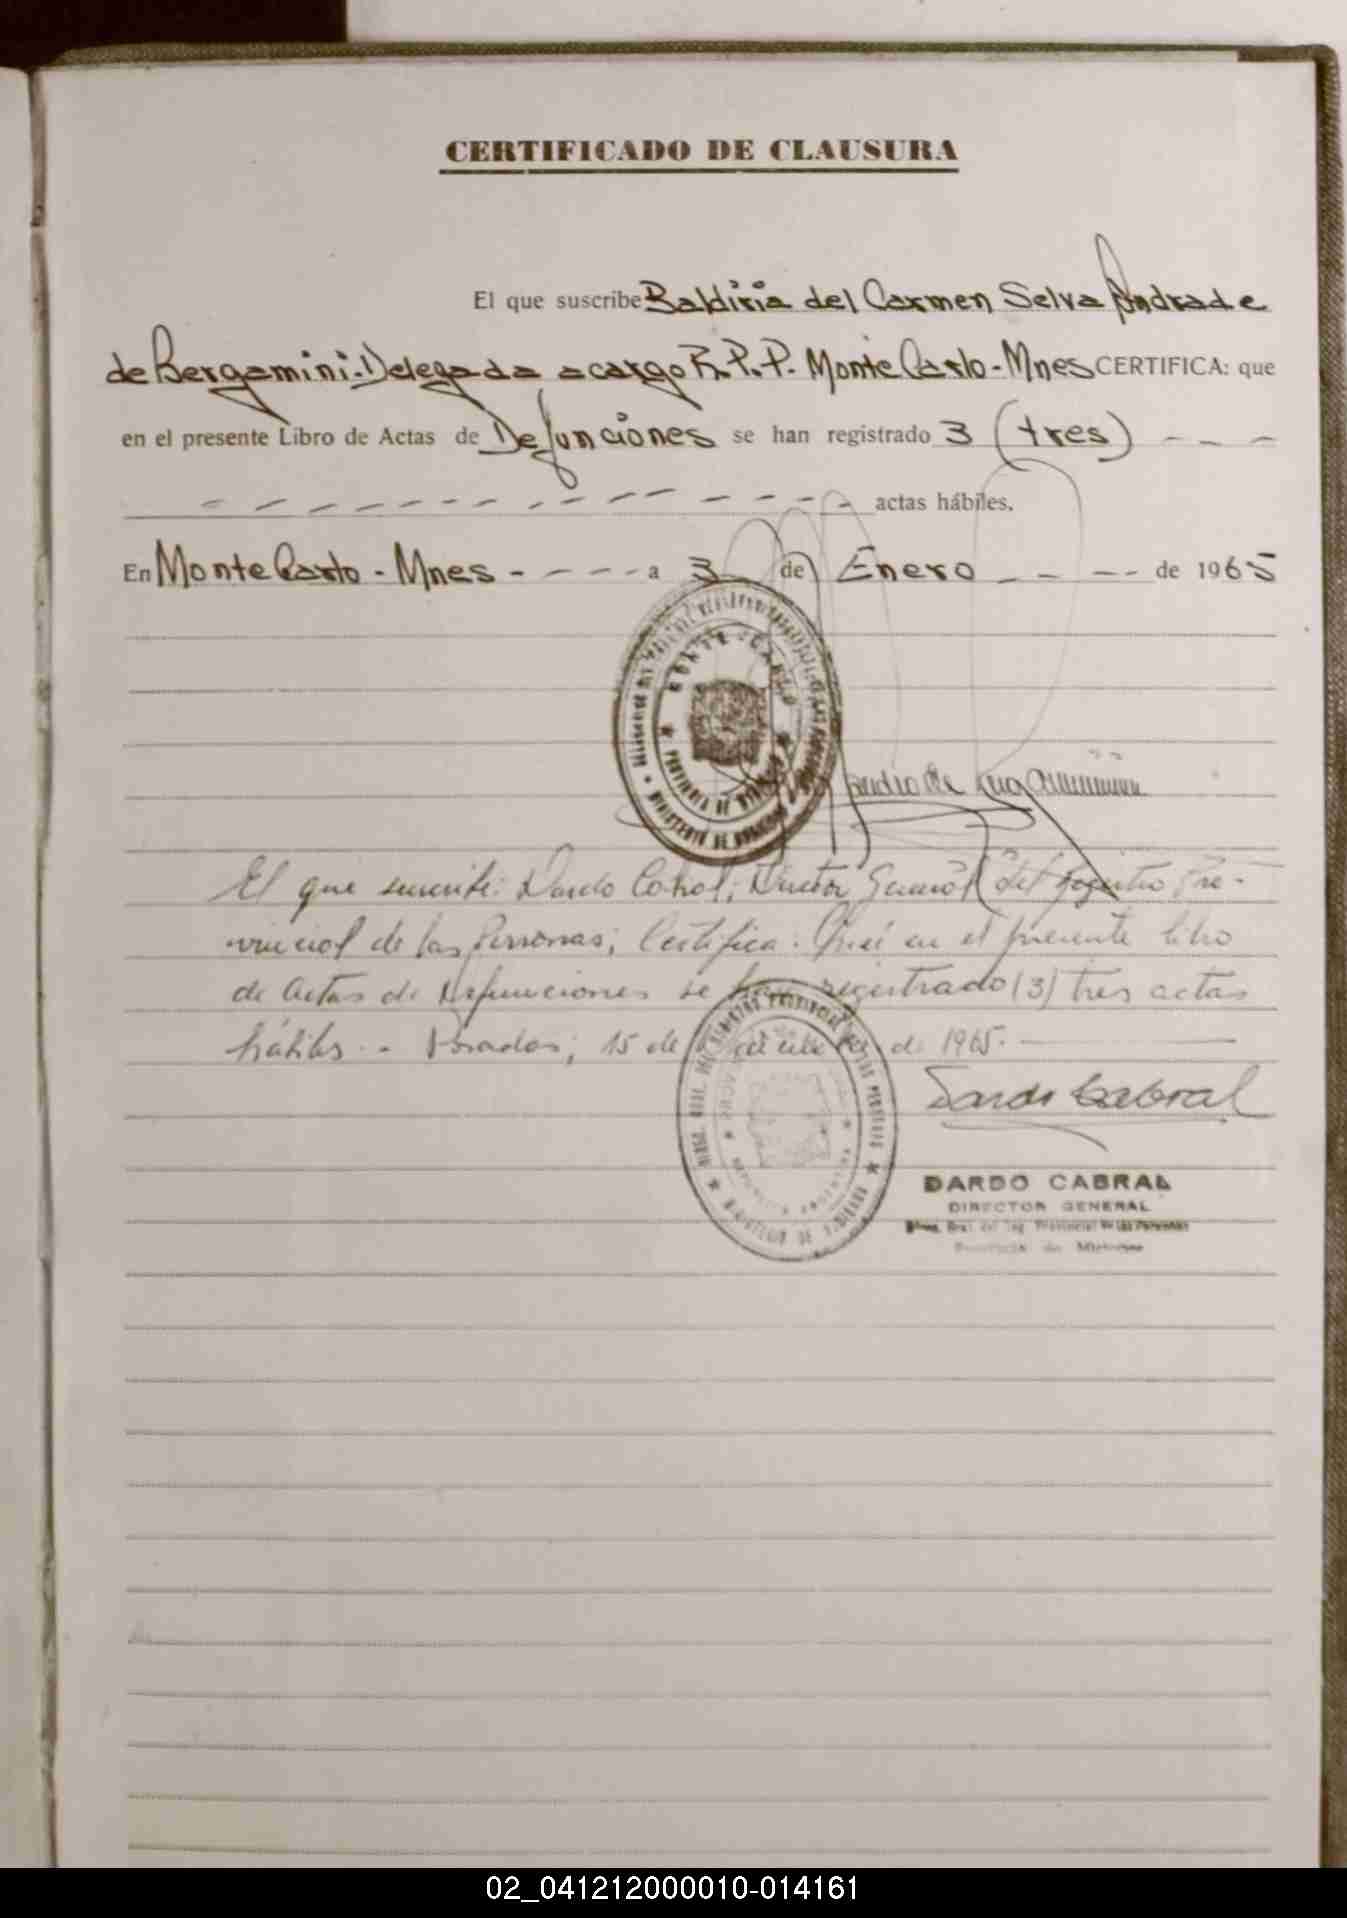 CERTIFICADO DE CLAUSURA
El que suscribe Baldiria del Carmen Selva Andrade
de Bergamini. Delegada a cargo R.P.P. Monte Carlo - Mnes CERTIFICA: que
en el presente Libro de Actas de Defunciones se han registrado 3 (tres) - - -
- - - - - - - - - - - - - actas hábiles.
En Monte Carlo - Mnes - - - - - a 3 de Enero - - - - de 1965
MONTE CARLO
PROVINCIA DE MISIONES
MINISTERIO DE GOBIERNO
El que suscribe: Dardo Cabral; Director General del Registro Pro-
vincial de las Personas; Certifica: Que en el presente libro
de Actas de Defunciones se han registrado (3) tres actas
hábiles. - Posadas, 15 de de 1965.
DIREC. GRAL. DEL REGISTRO PROVINCIAL DE LAS PERSONAS
REPUBLICA ARGENTINA
MINISTERIO DE GOBIERNO
Dardo Cabral
DARDO CABRAL
DIRECTOR GENERAL
Direc. Gral. del Reg. Provincial de las Personas
Provincia de Misiones
02_041212000010-014161